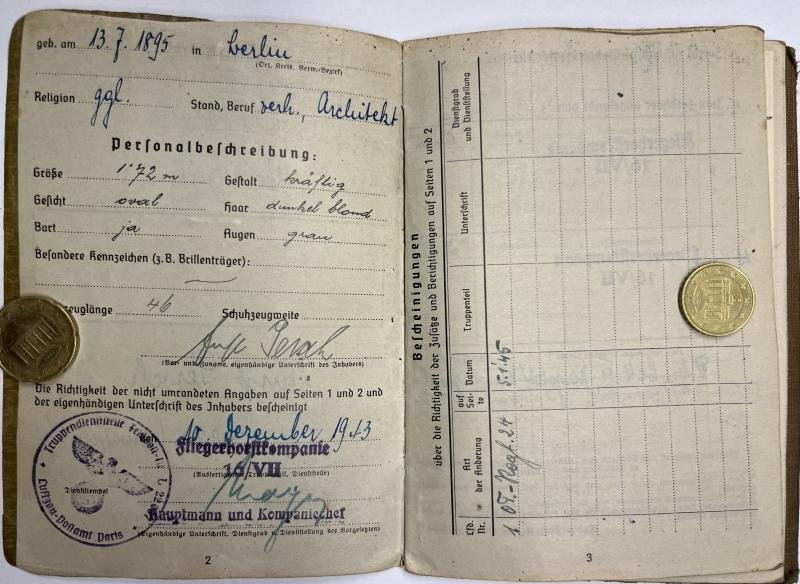 geb. am 13.7.1895 in Berlin
(Ort, Kreis, Verw.-Bezirk)
Religion ggl. Stand, Beruf verh., Architekt
Personalbeschreibung:
Größe 1.72 m Gestalt kräftig
Gesicht oval Haar dunkel blond
Bart ja Augen grau
Besondere Kennzeichen (z. B. Brillenträger):
zeuglänge 46 Schuhzeugweite
(Vor- und Zuname, eigenhändige Unterschrift des Inhabers)
Die Richtigkeit der nicht umrandeten Angaben auf Seiten 1 und 2 und
der eigenhändigen Unterschrift des Inhabers bescheinigt
10. Dezember 1943
Fliegerhorstkompanie
16/VII
Dienststelle)
Truppendienststelle
Luftgau-Postamt Paris
Dienststempel
Hauptmann und Kompaniechef
(Eigenhändige Unterschrift, Dienstgrad u. Dienststellung des Vorgesetzten)
2
Bescheinigungen
über die Richtigkeit der Zusätze und Berichtigungen auf Seiten 1 und 2
Lfd. Nr.
Art der Änderung
auf Seite
Datum
Truppenteil
Unterschrift
Dienstgrad und Dienststellung
1 5.1.45
3